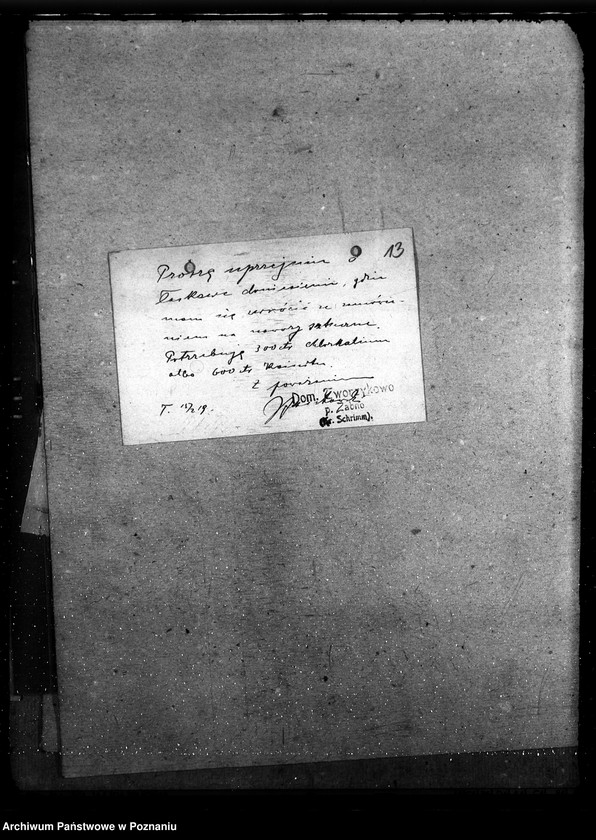 13
Proszę uprzejmie o
łaskawe doniesienie, gdzie
mam się zwrócić z zamówie-
niem na nawozy sztuczne.
Potrzebuję 300 ctr chlorkalium
albo 600 ctr Kainitu.
Z poważaniem
T. 15/2 19.
Dom. Tworzykowo
p. Żabno
(Kr. Schrimm).
Archiwum Państwowe w Poznaniu